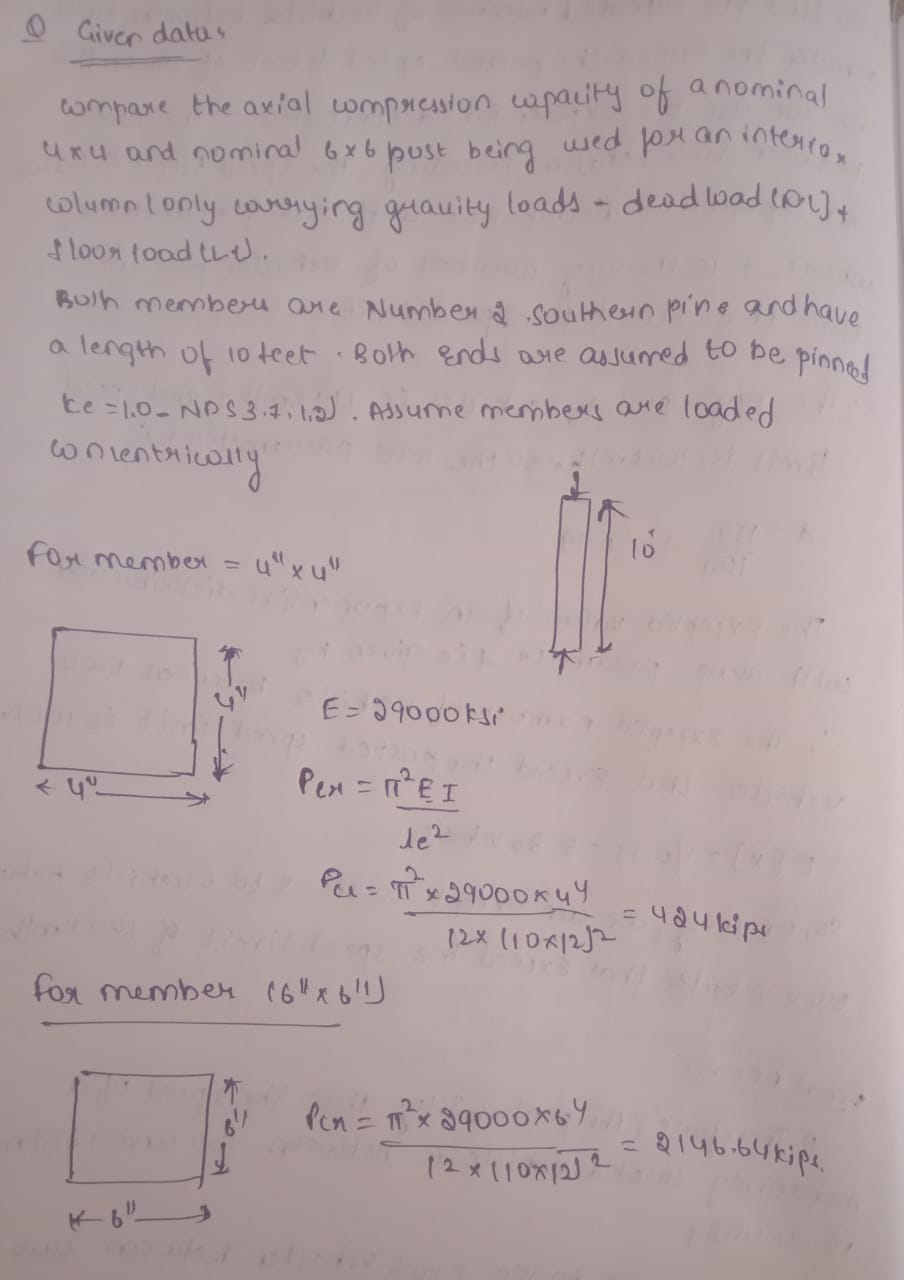 ① Given data,
compare the axial compression capacity of a nominal
4x4 and nominal 6x6 post being used for an interior
column (only carrying gravity loads - dead load (DL) +
floor load (LL).
Both members are Number 2 southern pine and have
a length of 10 feet. Both ends are assumed to be pinned
ke = 1.0 - NDS 3.7.1.2). Assume members are loaded
concentrically
10'
For member = 4" x 4"
4"
4"
E = 29000 ksi
Pcr = π² E I
le²
Pcr = π² x 29000 x 4⁴
12 x (10x12)²
= 424 kips
for member (6" x 6")
6"
6"
Pcr = π² x 29000 x 6⁴
12 x (10x12)²
= 2146.64 kips.